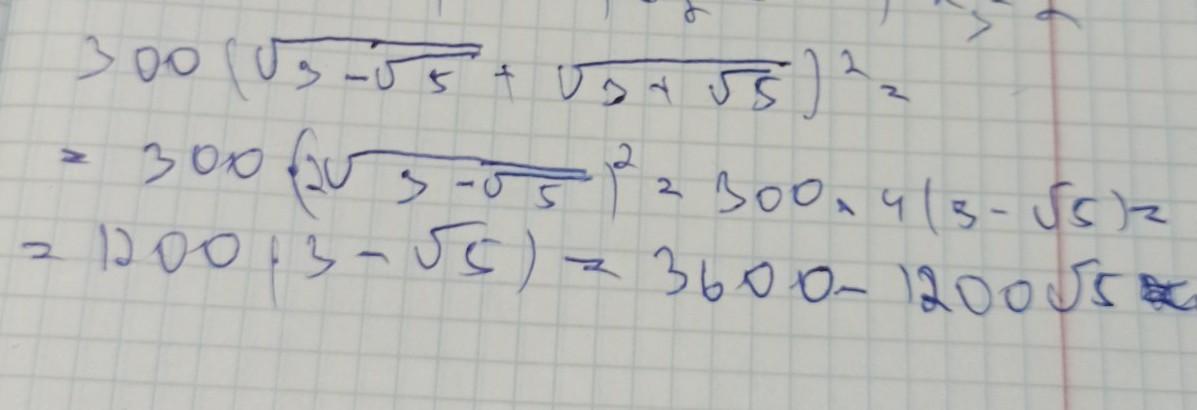 300(√(3-√5) + √(3+√5))² =
= 300(2√(3-√5))² = 300 · 4(3-√5) =
= 1200(3-√5) = 3600 - 1200√5